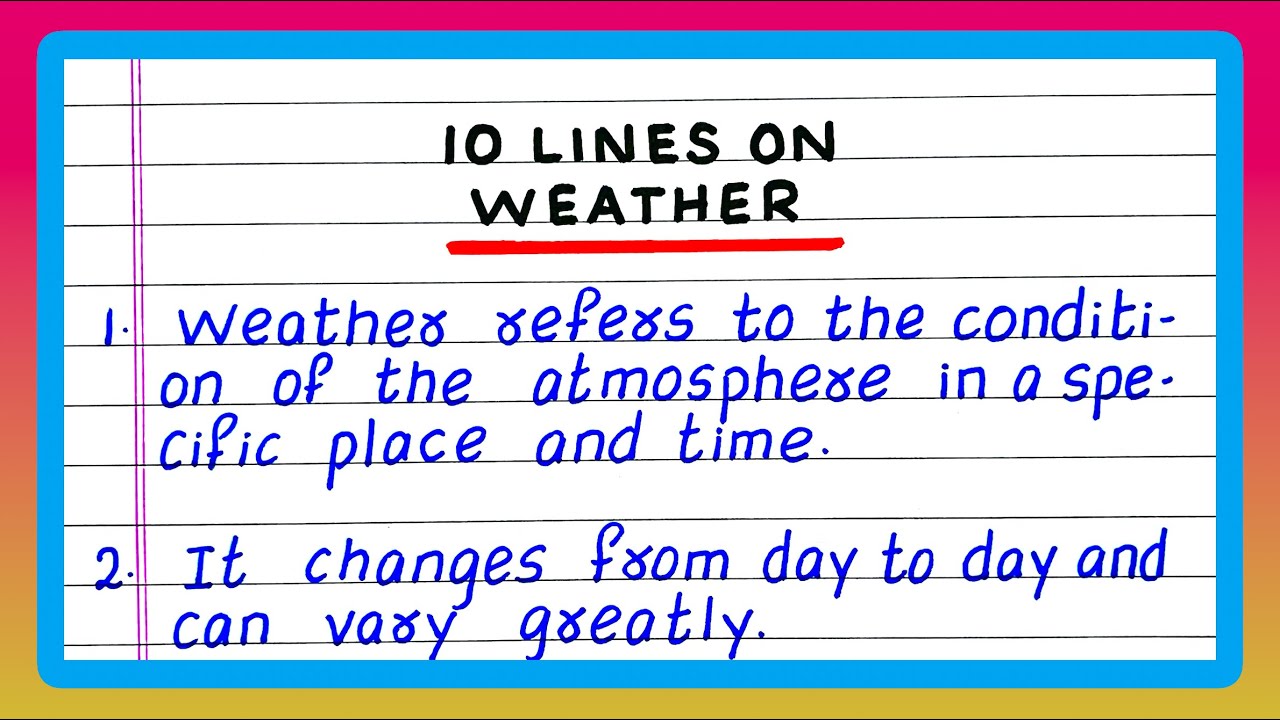 10 LINES ON
WEATHER
1. Weather refers to the conditi-
on of the atmosphere in a spe-
cific place and time.
2. It changes from day to day and
can vary greatly.